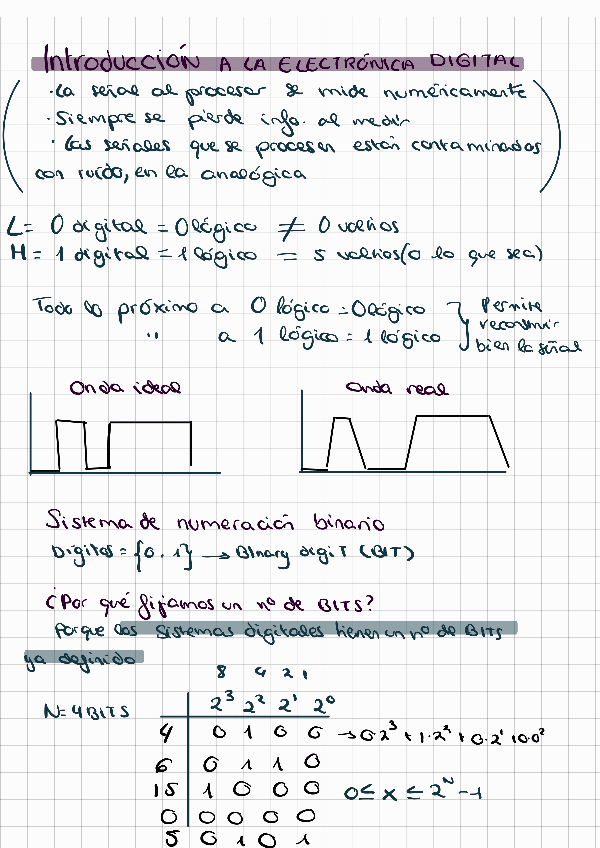 Introducción A LA ELECTRÓNICA DIGITAL
· La señal al procesar se mide numéricamente
· Siempre se pierde info. al medir
· Las señales que se procesan están contaminadas
con ruido, en la analógica
L = 0 digital = 0 lógico ≠ 0 voltios
H = 1 digital = 1 lógico = 5 voltios (o lo que sea)
Todo lo próximo a 0 lógico = 0 lógico } Permite
" a 1 lógico = 1 lógico } reconstruir
bien la señal
Onda ideal Onda real
Sistema de numeración binario
Digitos = {0, 1} → BInary digiT (BIT)
¿Por qué fijamos un nº de BITS?
Porque los sistemas digitales tienen un nº de BITS
ya definido
8 4 2 1
N = 4 BITS 2³ 2² 2¹ 2⁰
4 0 1 0 0 → 0·2³ + 1·2² + 0·2¹ + 0·0²
6 0 1 1 0
15 1 0 0 0 0 ≤ x ≤ 2ᴺ - 1
0 0 0 0 0
5 0 1 0 1